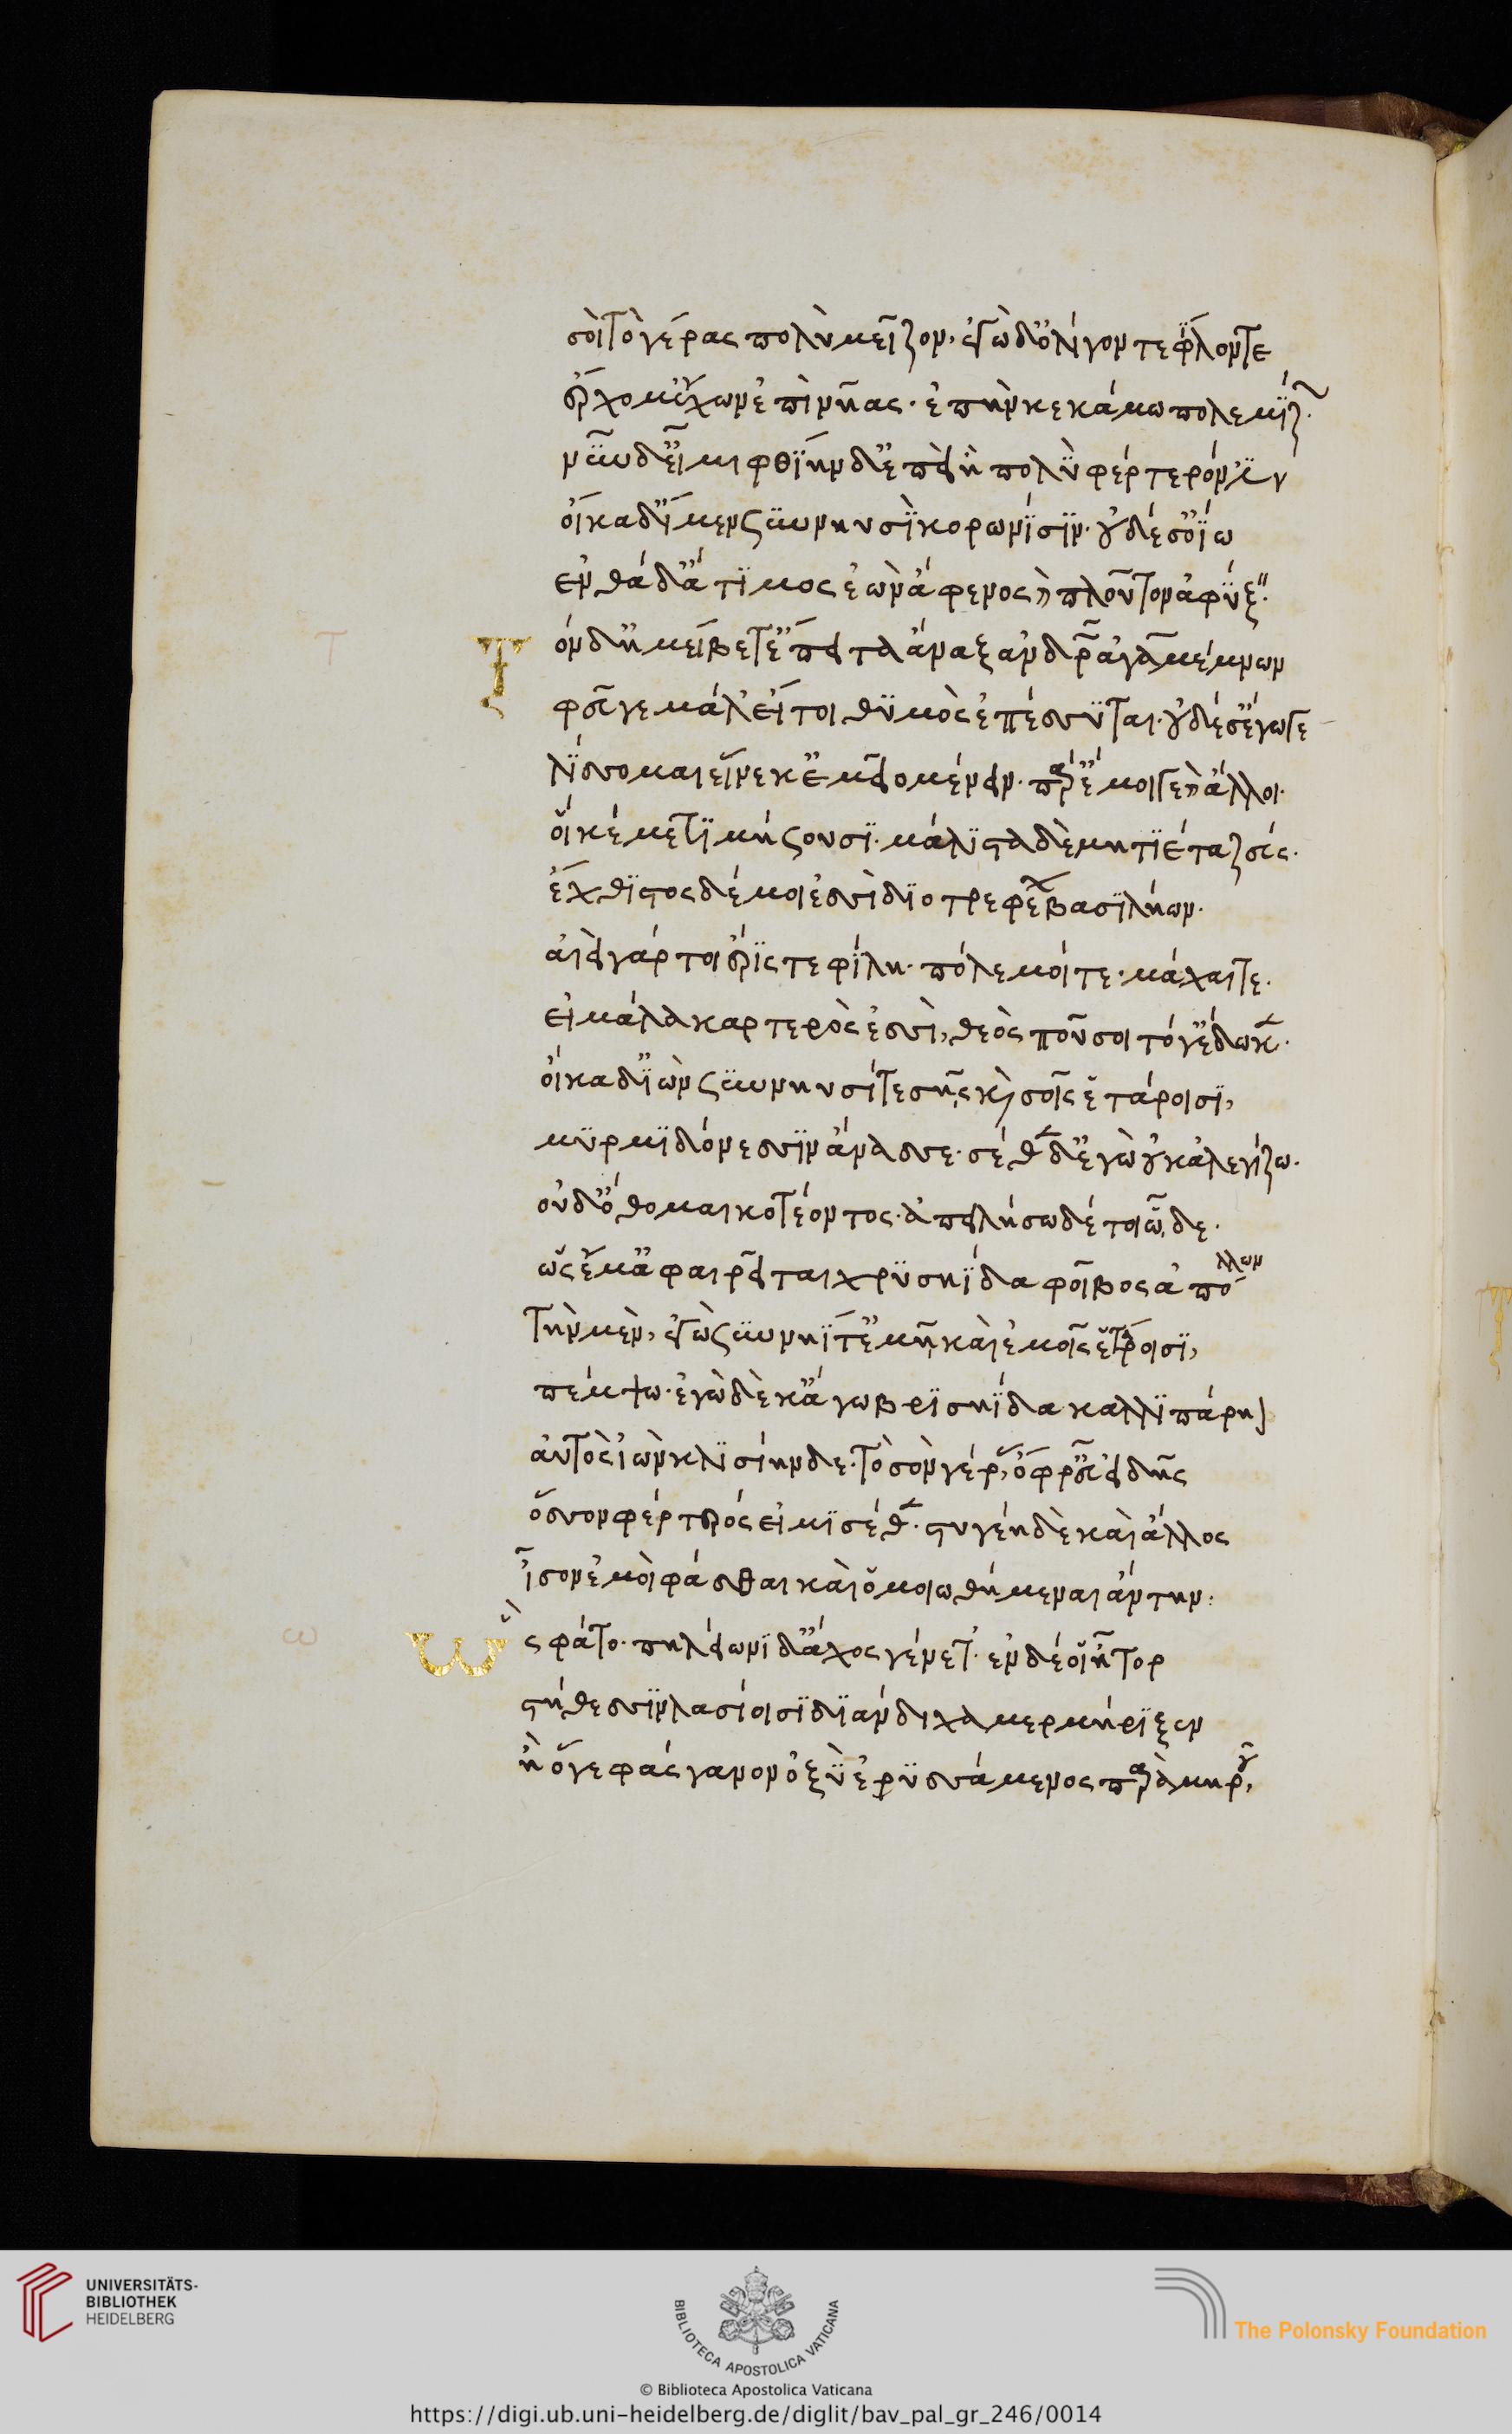 σοὶ τὸ γέρας πολὺ μεῖζον, ἐγὼ δ' ὀλίγον τε φίλον τε
ἔρχομ' ἔχων ἐπὶ νῆας. ἐπὴν κεκάμω πολεμίζων.
νῦν δ' εἶμι φθίην δ' ἐπειὴ πολὺ φέρτερόν ἐστιν
οἴκαδ' ἴμεν ξὺν νηυσὶ κορωνίσιν. οὐδέ σ' ὀΐω
ἐνθάδ' ἄτιμος ἐὼν ἄφενος καὶ πλοῦτον ἀφύξειν.
Τὸν δ' ἠμείβετ' ἔπειτα ἄναξ ἀνδρῶν ἀγαμέμνων
φεῦγε μάλ' εἴ τοι θυμὸς ἐπέσσυται. οὐδέ σ' ἔγωγε
λίσσομαι εἵνεκ' ἐμεῖο μένειν. παρ' ἔμοιγε καὶ ἄλλοι.
οἵ κέ με τιμήσουσι. μάλιστα δὲ μητίετα ζεύς.
ἔχθιστος δέ μοι ἐσσὶ διοτρεφέων βασιλήων.
αἰεὶ γάρ τοι ἔρις τε φίλη. πόλεμοί τε. μάχαι τε.
εἰ μάλα καρτερὸς ἐσσὶ, θεὸς που σοὶ τό γ' ἔδωκεν.
οἴκαδ' ἰὼν ξὺν νηυσί τε σῇς καὶ σοῖς ἑτάροισι,
μυρμιδόνεσσιν ἄνασσε. σέθεν δ' ἐγὼ οὐκ ἀλεγίζω.
οὐδ' ὄθομαι κοτέοντος. ἀπειλήσω δέ τοι ὧδε.
ὡς ἔμ' ἀφαιρεῖται χρυσηΐδα φοῖβος ἀπόλλων
τὴν μὲν, ἐγὼ ξὺν νηΐ τ' ἐμῇ καὶ ἐμοῖς ἑτάροισι,
πέμψω. ἐγὼ δὲ κ' ἄγω βρισηΐδα καλλιπάρηον
αὐτὸς ἰὼν κλισίην δε. τὸ σὸν γέρας, ὄφρ' εὖ εἰδῇς
ὅσσον φέρτερός εἰμι σέθεν. στυγέῃ δὲ καὶ ἄλλος
ἶσον ἐμοὶ φάσθαι καὶ ὁμοιωθήμεναι ἄντην:
Ὣς φάτο. πηλείωνι δ' ἄχος γένετ'. ἐν δέ οἱ ἦτορ
στήθεσσιν λασίοισι διάνδιχα μερμήριξεν
ἢ ὅγε φάσγανον ὀξὺ ἐρυσσάμενος παρὰ μηροῦ,
Τ
ω
UNIVERSITÄTS-
BIBLIOTHEK
HEIDELBERG
BIBLIOTECA APOSTOLICA VATICANA
The Polonsky Foundation
© Biblioteca Apostolica Vaticana
https://digi.ub.uni-heidelberg.de/diglit/bav_pal_gr_246/0014